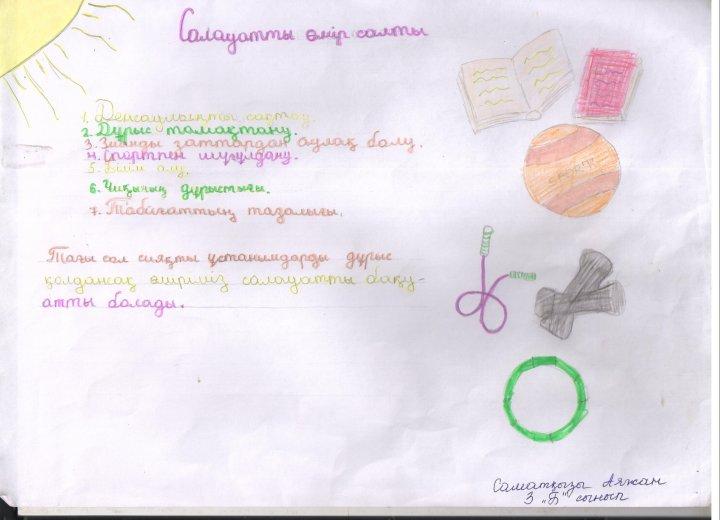 Салауатты өмір салты
1. Денсаулықты сақтау.
2. Дұрыс тамақтану.
3. Зиянды заттардан аулақ болу.
4. Спортпен шұғылдану.
5. Білім алу.
6. дұрыстығы.
7. Табиғаттың тазалығы.
Тағы сол сияқты ұстанымдарды дұрыс
қолдансақ өміріміз салауатты бақу-
атты болады.
СПОРТ
Саматқызы Аяжан
3 "Б" сынып